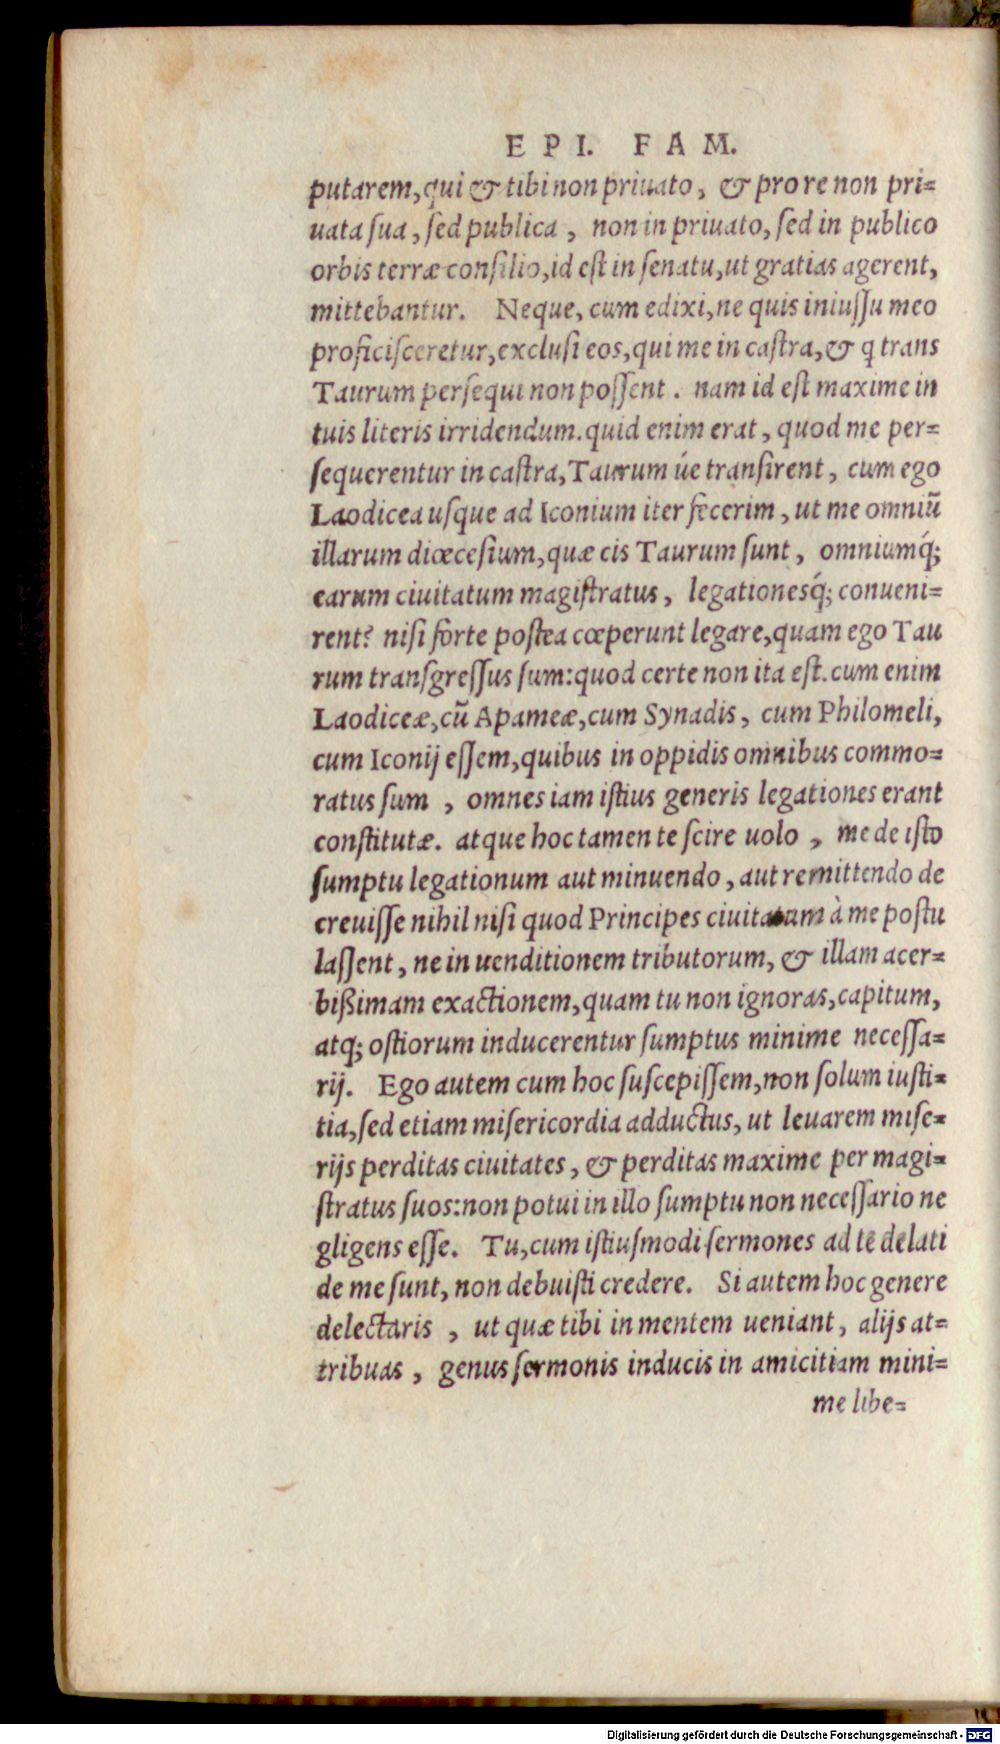 EPI. FAM.
putarem, qui & tibi non priuato, & pro re non pri=
uata sua, sed publica, non in priuato, sed in publico
orbis terræ consilio, id est in senatu, ut gratias agerent,
mittebantur. Neque, cum edixi, ne quis iniussu meo
proficisceretur, exclusi eos, qui me in castra, & q trans
Taurum persequi non possent. nam id est maxime in
tuis literis irridendum. quid enim erat, quod me per=
sequerentur in castra, Taurum úe transirent, cum ego
Laodicea usque ad Iconium iter fecerim, ut me omniũ
illarum diœcesium, quæ cis Taurum sunt, omniumq́;
earum ciuitatum magistratus, legationesq́; conueni=
rent? nisi forte postea cœperunt legare, quam ego Tau
rum transgressus sum: quod certe non ita est. cum enim
Laodiceæ, cũ Apameæ, cum Synadis, cum Philomeli,
cum Iconij essem, quibus in oppidis omnibus commo=
ratus sum, omnes iam istius generis legationes erant
constitutæ. atque hoc tamen te scire uolo, me de isto
sumptu legationum aut minuendo, aut remittendo de
creuisse nihil nisi quod Principes ciuitatum à me postu
lassent, ne in uenditionem tributorum, & illam acer=
bißimam exactionem, quam tu non ignoras, capitum,
atq; ostiorum inducerentur sumptus minime necessa=
rij. Ego autem cum hoc suscepissem, non solum iusti=
tia, sed etiam misericordia adductus, ut leuarem mise=
rijs perditas ciuitates, & perditas maxime per magi=
stratus suos: non potui in illo sumptu non necessario ne
gligens esse. Tu, cum istiusmodi sermones ad te delati
de me sunt, non debuisti credere. Si autem hoc genere
delectaris, ut quæ tibi in mentem ueniant, alijs at=
tribuas, genus sermonis inducis in amicitiam mini=
me libe=
Digitalisierung gefördert durch die Deutsche Forschungsgemeinschaft - DFG